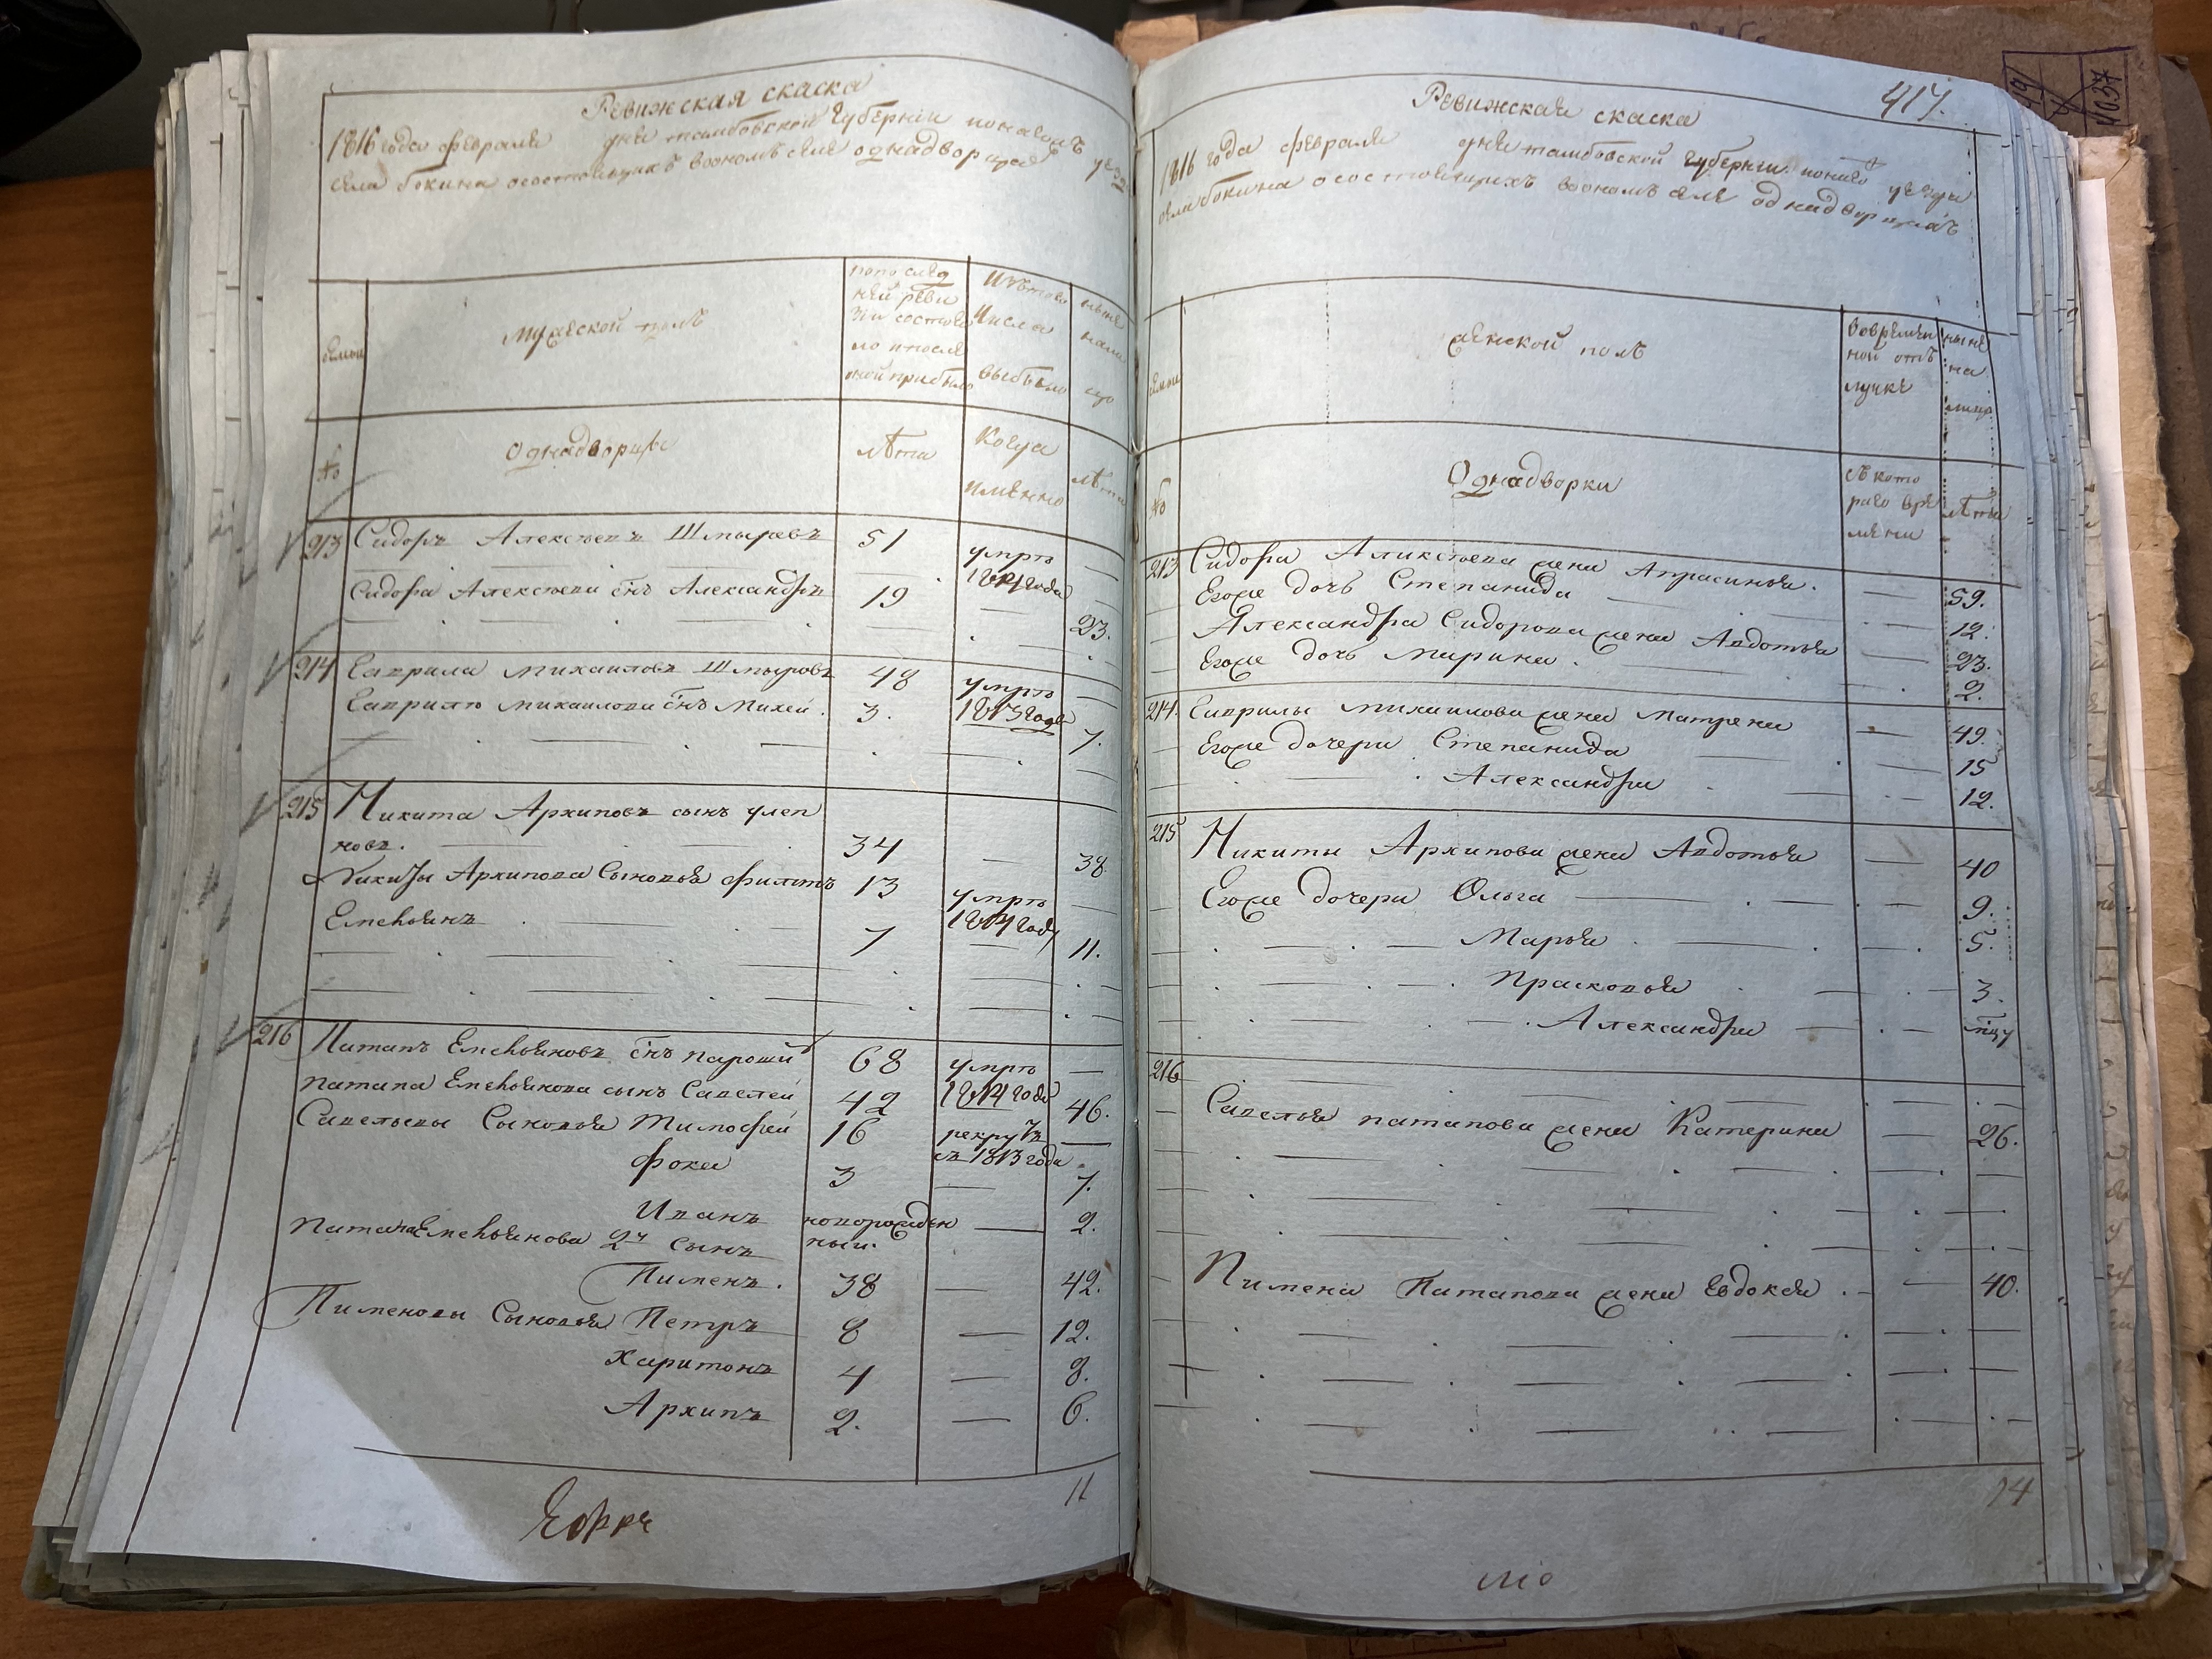 Ревижская скаска
1816 года февраля дня тамбовской губернии
села бокина осостоящихъ воономъ селе однадворцахъ
мужеской полъ
попослед
ней реви
зіи состоя
ло ипосле
оной прибыло
Изътово
Числа
выбыло
ныне
нали
цо
№
Однадворцы
лета
Когда
имянно
лета
213 Сидоръ Алексеевъ Шмыревъ 51 умръ —
1814 года
Сидора Алексеева снъ Александръ 19 — 23.
214 Гаврила Михаиловъ Шмыровъ 48 умръ —
1813 года
Гаврилы Михаилова снъ Михей. 3. 7.
215 Никита Архиповъ сынъ улеп
новъ. 34 — 38.
Никиты Архипова Сыновья филатъ 13 умръ —
1814 году
Емельянъ 7 — 11.
216 Патапъ Емельяновъ снъ 68 умръ —
1814 года
Патапа Емельянова сынъ Савелей 42 46.
Савельевы Сыновья Тимофей 16 рекрутъ —
съ 1813 года
фока 3 — 7.
Иванъ новорожден — 2.
ный.
Патапа Емельянова 2й сынъ
Пименъ. 38 — 42.
Пименовы Сыновья Петръ 8 — 12.
Харитонъ 4 — 8.
Архипъ 2. — 6.
11
417.
Ревижская скаска
1816 года февраля дня тамбовской губернии
села бокина осостоящихъ воономъ селе однадворцахъ
женской полъ
вовремян
ной отъ
лучке
ныне
на
лицо
№
Однадворки
съ кото
раго вре
мяни
лета
213 Сидора Аликсеева жена Апрасинья. — 59.
Егоже дочь Степанида — 12.
Александра Сидорова жена Авдотья — 23.
Егоже дочь Марина. 2.
214. Гаврилы михаилова жена Матрена — 49.
Егоже дочери Степанида — 15
Александра 12.
215 Никиты Архипова жена Авдотья — 40
Егоже дочери Ольга — 9.
Марья 5.
Прасковья 3.
Александра
216
Савелья патапова жена Катерина — 26.
Пимена Патапова жена Евдокея — 40.
14